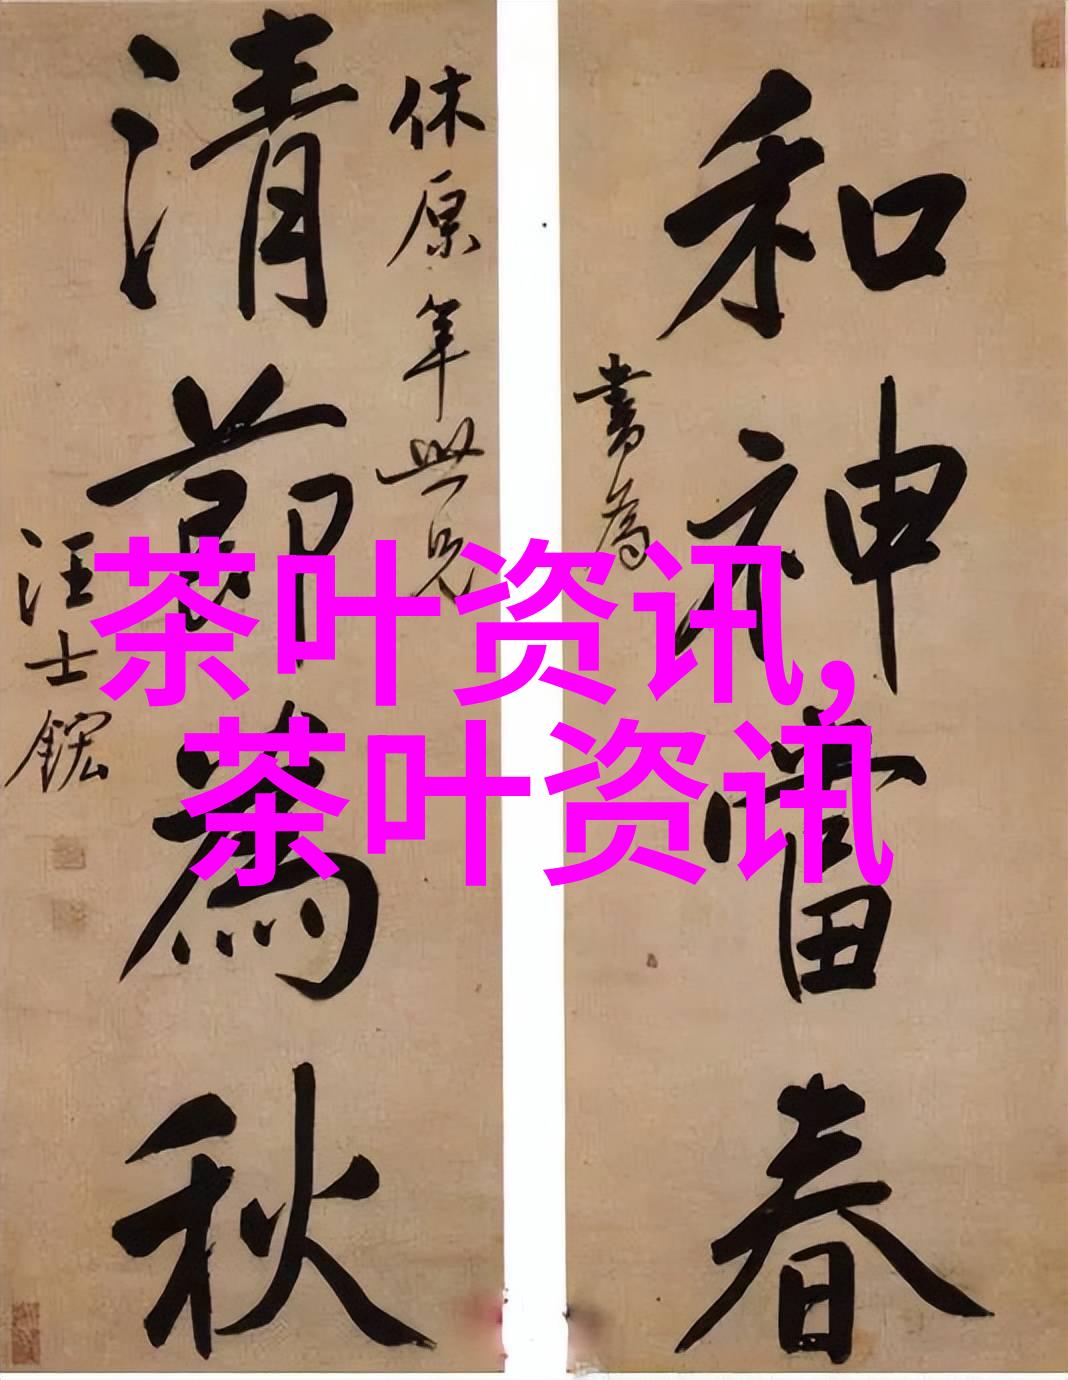 和神當春
書為
休原年世兄
清節為秋
汪士鋐
茶叶资讯,
茶叶资讯